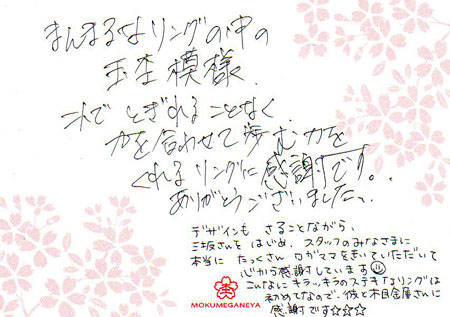 まんまるなリングの中の
杢模様。
これで とぎれることなく
力を合わせて歩む力を
くれるリングに感謝です。
ありがとうございました。
デザインも さることながら、
三坂さんを はじめ、スタッフのみなさまに
本当に たっくさん ワガママをきいていただいて
心から感謝しています
こんなにキラッキラのステキなリングは
初めてなので、彼と杢目金屋さんに
感謝です☆☆☆
MOKUMEGANEYA